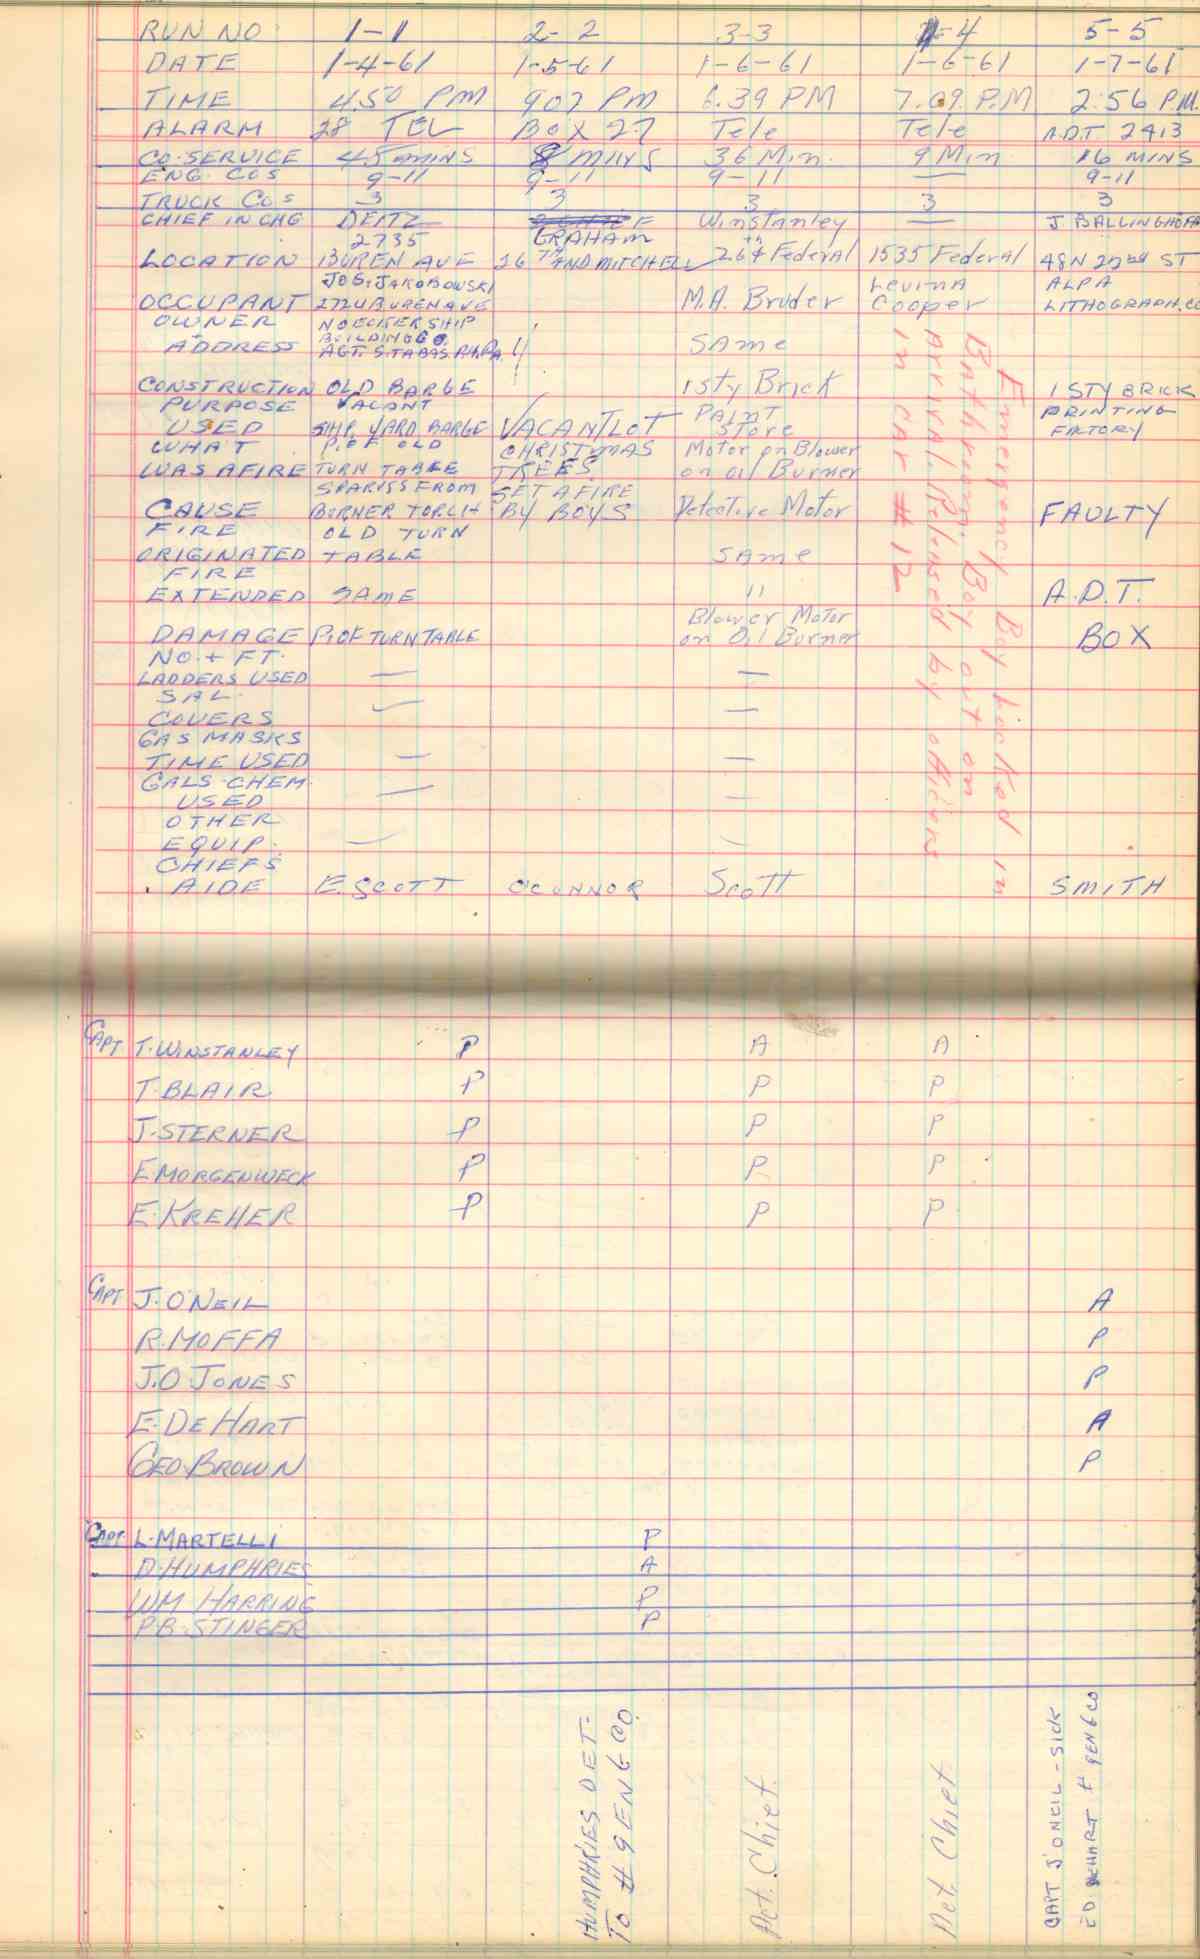 RUN NO. 1-1 2-2 3-3 4-4 5-5
DATE 1-4-61 1-5-61 1-6-61 1-6-61 1-7-61
TIME 4.50 PM 907 PM 6.39 PM 7.09 P.M 2:56 P.M.
ALARM 28 TEL BOX 27 Tele Tele A.D.T 2413
CO. SERVICE 45 MINS 8 MINS 36 Min. 9 Min. 16 MINS
ENG. COS 9-11 9-11 9-11 — 9-11
TRUCK COS 3 3 3 3 3
CHIEF IN CHG DEITZ GRAHAM Winstanley — J. BALLINGHOFF
2735
LOCATION BUREN AVE 26TH AND MITCHELL 26th + Federal 1535 Federal 48 N 22nd ST
JOS. JAKABOWSKI Levina ALPA
OCCUPANT 2724 BUREN AVE M.A. Bruder Cooper LITHOGRAPH. CO
OWNER NOECKER SHIP
+ BUILDING CO.
ADDRESS AGT. S. TABAS PH. PA. SAME
CONSTRUCTION OLD BARGE 1 Sty Brick 1 STY BRICK
PURPOSE VACANT PAINT PRINTING
USED SHIP YARD BARGE VACANT LOT STORE FACTORY
WHAT P. OF OLD CHRISTMAS Motor on Blower
WAS AFIRE TURN TABLE TREES on oil Burner
SPARKS FROM SET AFIRE
CAUSE BURNER TORCH BY BOYS Defective Motor FAULTY
FIRE OLD TURN
ORIGINATED TABLE SAME
FIRE
EXTENDED SAME " A.D.T.
Blower Motor
DAMAGE P. OF TURN TABLE on Oil Burner BOX
NO. + FT.
LADDERS USED — —
SAL.
COVERS — —
GAS MASKS
TIME USED — —
GALS. CHEM.
USED — —
OTHER
EQUIP. — —
CHIEFS
AIDE E. SCOTT O'CONNOR Scott SMITH
Emergency Boy locked in
Bathroom. Boy out on
arrival. Released by officers
in car # 12
CAPT T. WINSTANLEY P A A
T. BLAIR P P P
J. STERNER P P P
E. MORGENWECK P P P
E. KREHER P P P
CAPT J. O'NEIL A
R. MOFFA P
J.O JONES P
E. DE HART A
GEO. BROWN P
CAPT. L. MARTELLI P
D. HUMPHRIES A
WM HARRING P
P.B. STINGER P
HUMPHRIES DET-
TO # 9 ENG CO.
Act. Chief.
Act. Chief
CAPT J O'NEIL - SICK
ED. DEHART # 9 ENG CO